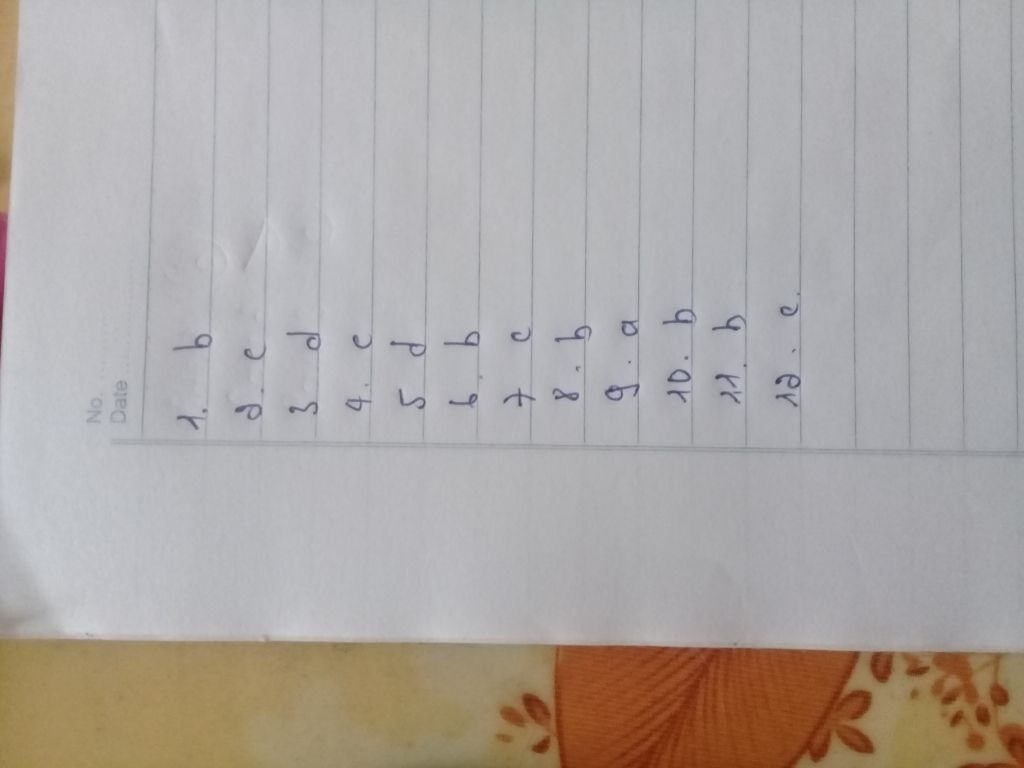 No.
Date
1. b
2. c
3 d
4. c
5 d
6. b
7 c
8. b
9. a
10. b
11. b
12. c.